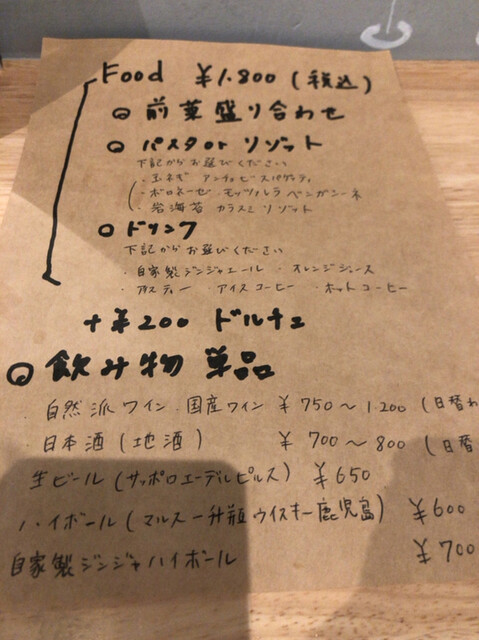 Food ¥1.800 (税込)
◎ 前菜盛り合わせ
◎ パスタor リゾット
下記からお選びください
・玉ネギ アンチョビ スパゲッティ
・ボロネーゼ モッツァレラ ペンガシーネ
・岩海苔 カラスミ リゾット
◎ ドリンク
下記からお選びください
・自家製ジンジャエール ・オレンジジュース
・アイスティー ・アイスコーヒー ・ホットコーヒー
+¥200 ドルチェ
◎ 飲み物 単品
・自然派ワイン 国産ワイン ¥750〜1.200 (日替わ
・日本酒(地酒) ¥700〜800 (日替
生ビール(サッポロエーデルピルス) ¥650
ハイボール(マルス一升瓶ウイスキー鹿児島) ¥600
自家製ジンジャハイボール ¥700